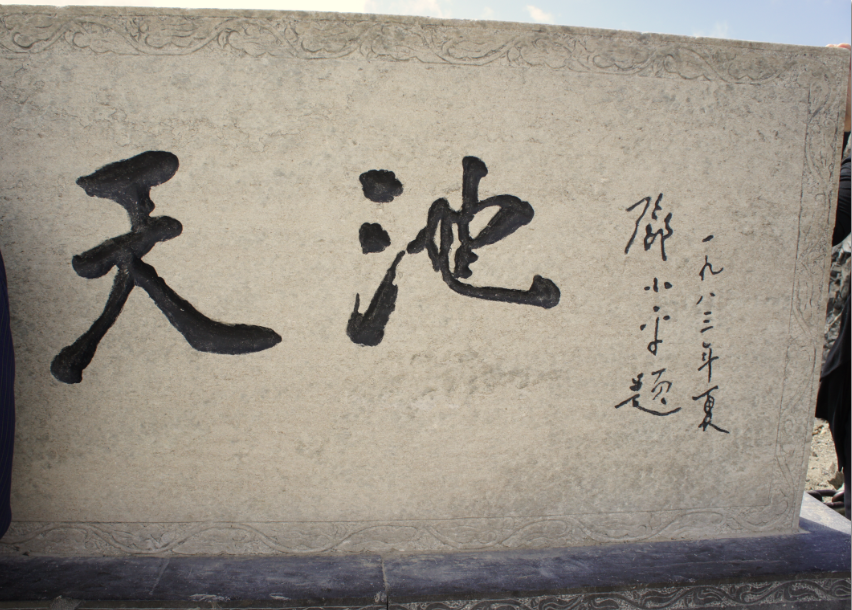 天池
一九八三年夏
鄧小平題